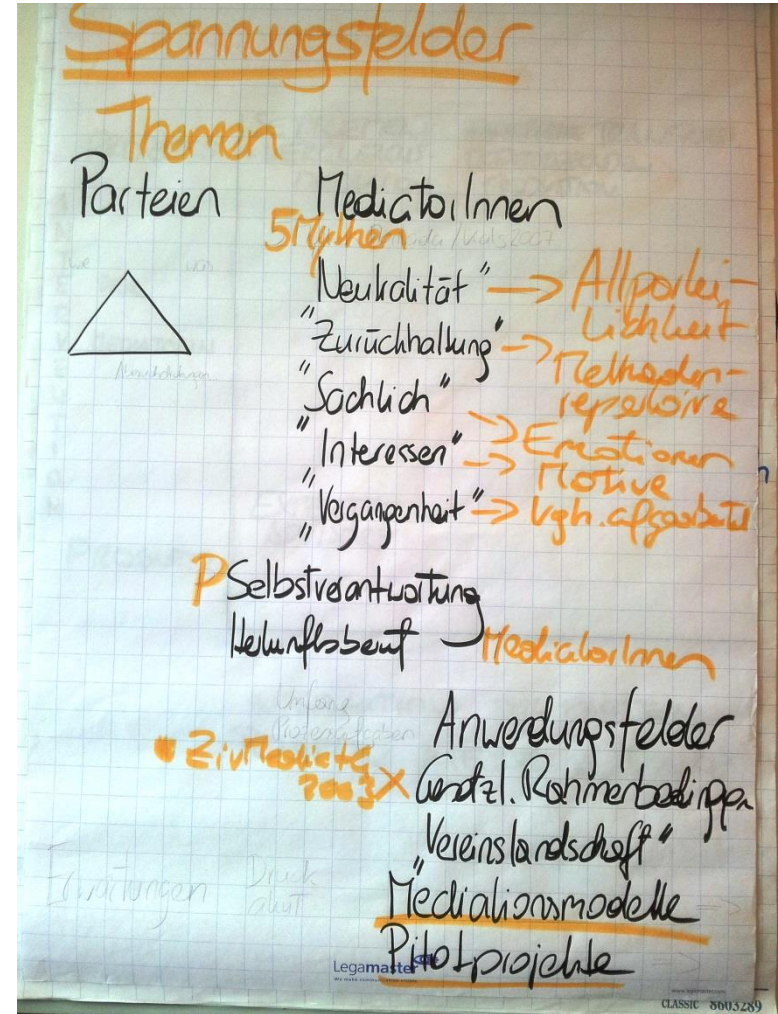 Spannungsfelder
Themen
Parteien MediatorInnen
5 Mythen
"Neutralität" -> Allpartei-
lichkeit
"Zurückhaltung" -> Methoden-
repertoire
"Sachlich" -> Emotionen
"Interessen" -> Motive
"Vergangenheit" -> Vgh. afgearbeitet
P Selbstverantwortung
Herkunftsberuf MediatorInnen
Umfang
Anwendungsfelder
ZivMediatG
2003 X Gesetzl. Rahmenbedingungen
"Vereinslandschaft"
Erwartungen Druck
akut
Mediationsmodelle
Pilotprojekte
Legamaster
www.legamaster.com
CLASSIC 8603289